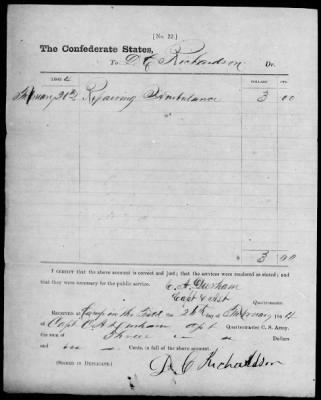 [No. 22.]
The Confederate States,
To D. C. Richardson Dr.
1864 DOLLARS CTS
February 26th Repairing Ambulance 3 00
$ 3 00
I CERTIFY that the above account is correct and just; that the services were rendered as stated; and
that they were necessary for the public service.
C. A. Durham
Capt & Asst
Quartermaster.
RECEIVED at Camp in the Field the 26th day of February 1864
of Capt C A Durham Asst Quartermaster C. S. Army,
the sum of Three Dollars
and Cents, in full of the above account.
(SIGNED IN DUPLICATE.) D. C. Richardson